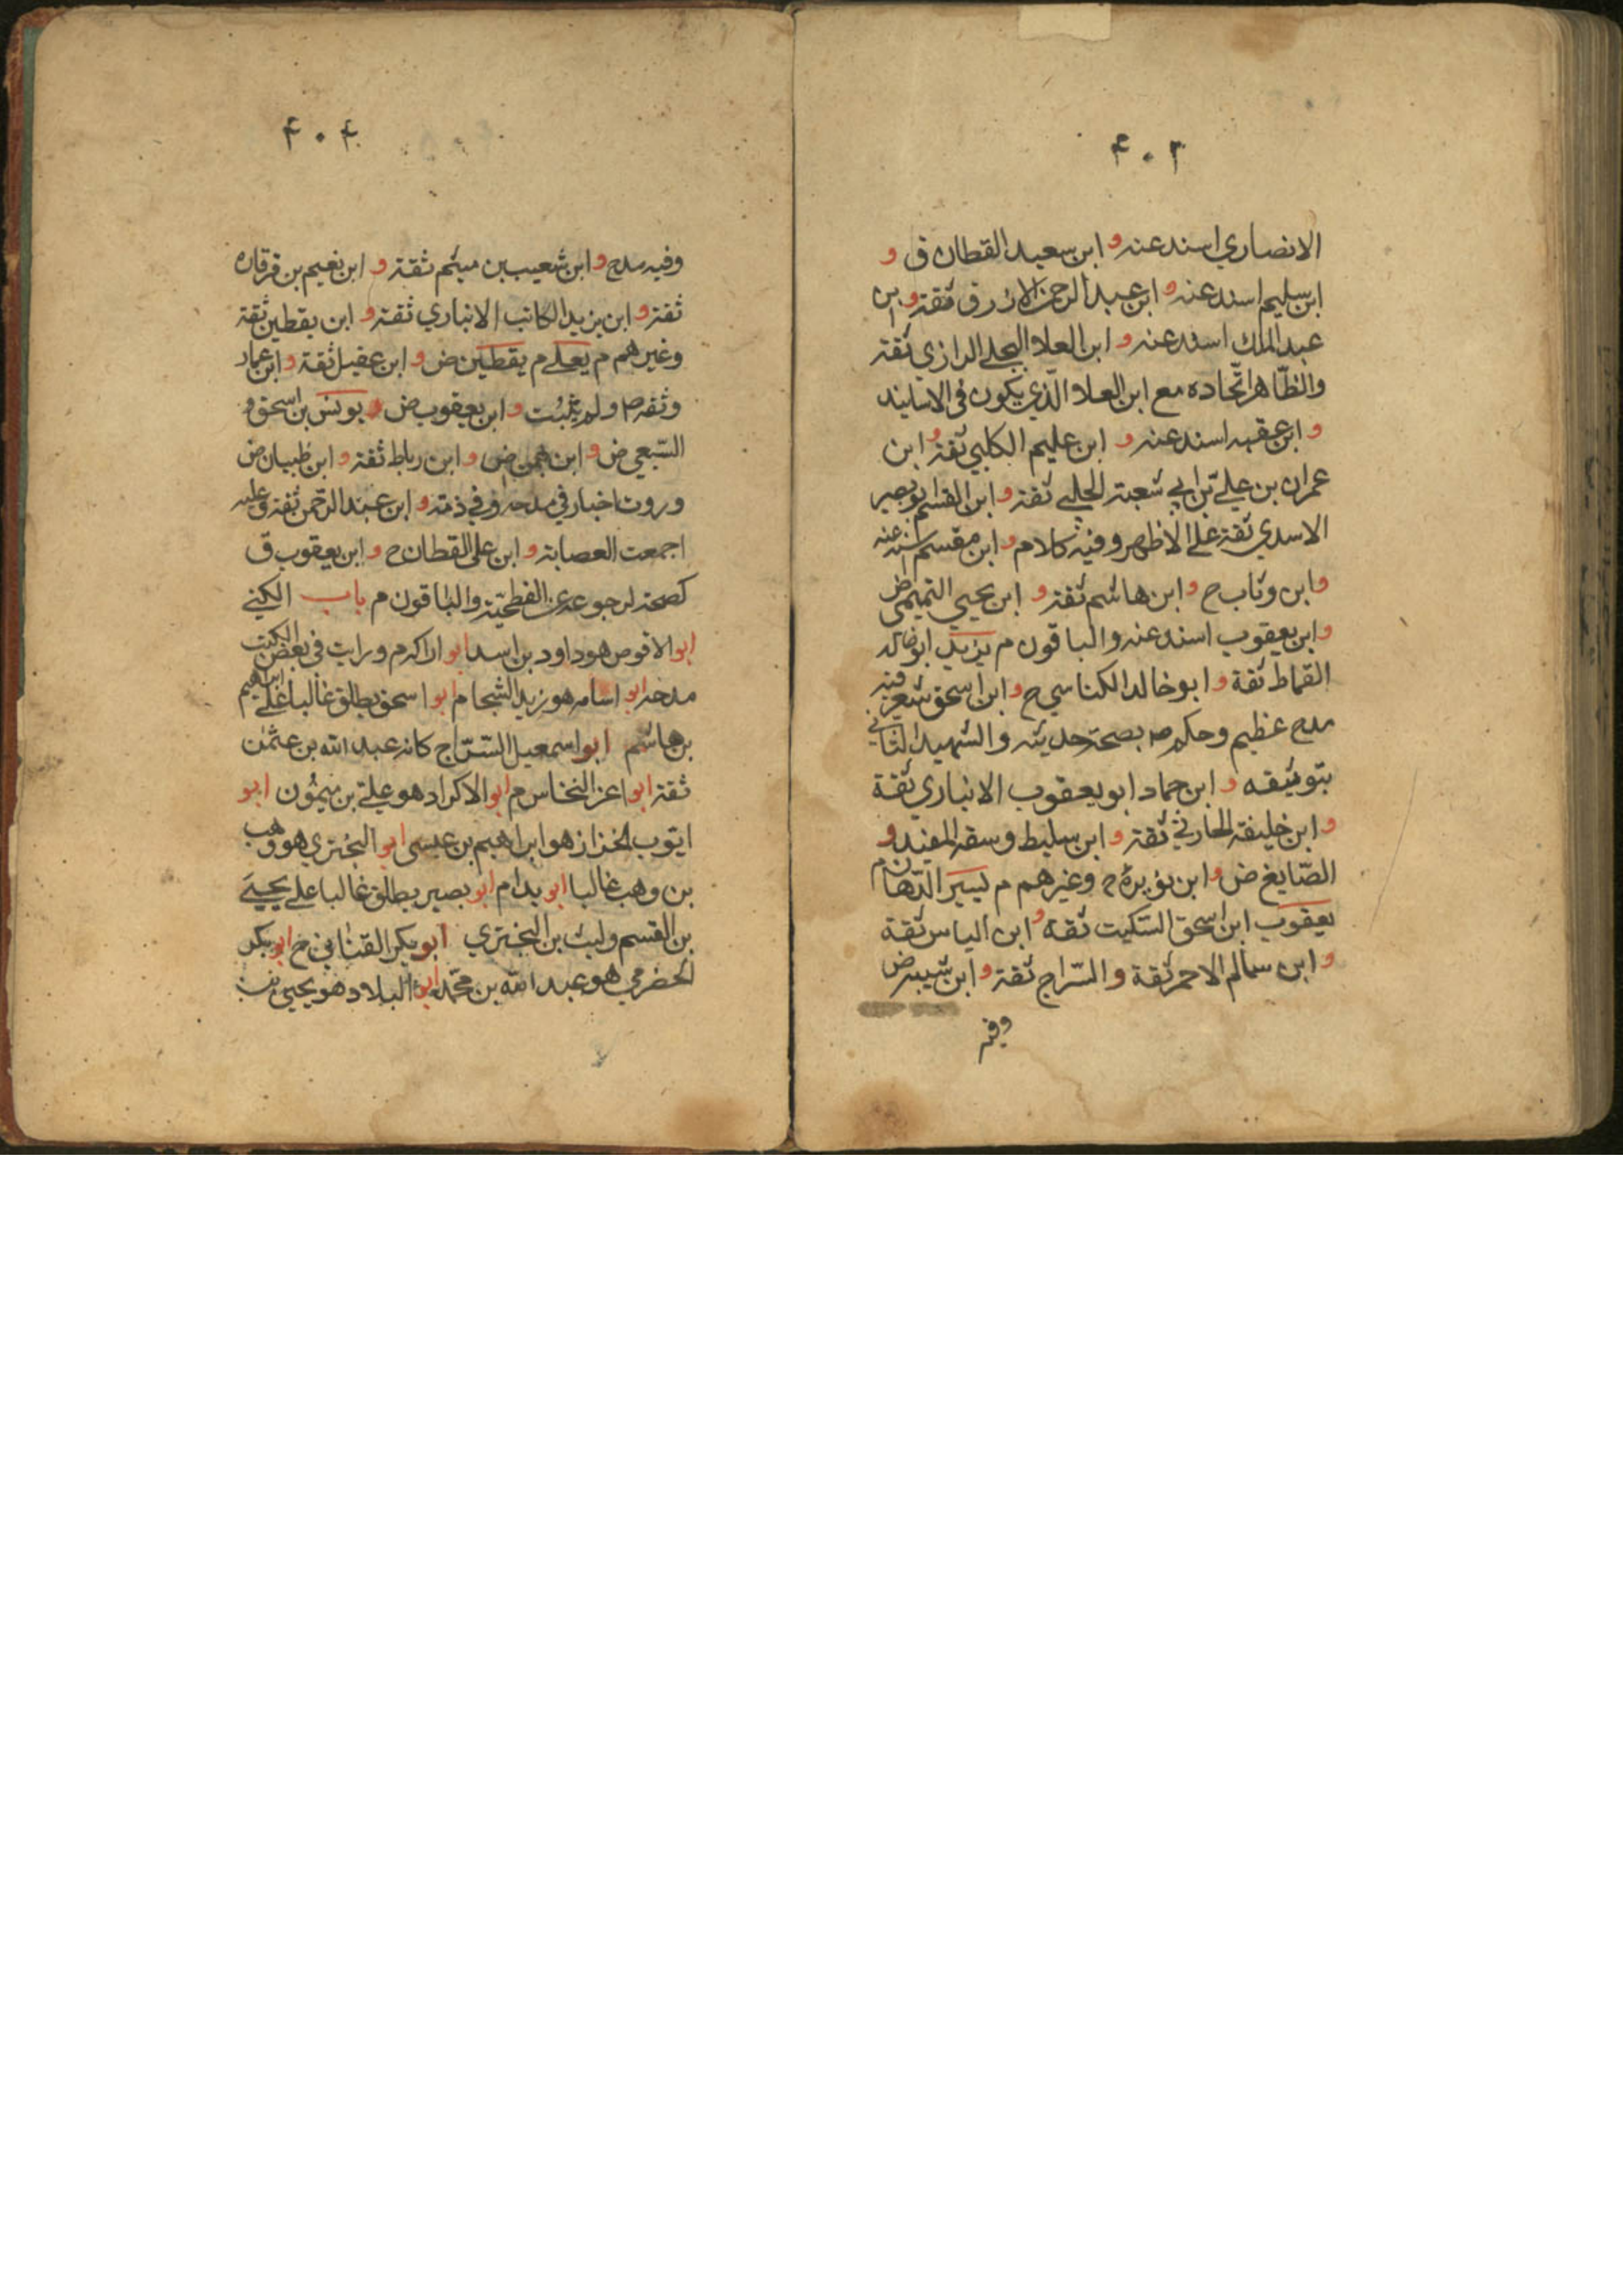 ۴۰۳
الانصاري اسند عنه و ابن سعيد القطان ق و
ابن سليم اسند عنه و ابن عبد الرحمن الازرق ثقة و ابن
عبد الملك اسند عنه و ابن العلا البجلي الرازي ثقة
والظاهر اتحاده مع ابن العلا الذي يكون في الاسانيد
و ابن عقبه اسند عنه و ابن عليم الكلبي ثقة و ابن
عمران بن علي بن ابي شعبة الحلبي ثقة و ابن القسم ابو بصير
الاسدي ثقة علي الاظهر و فيه كلام و ابن مقسم اسند عنه
و ابن وثاب ح و ابن هاشم ثقة و ابن يحيي التميمي ض
و ابن يعقوب اسند عنه والباقون م يزيد ابو خالد
القماط ثقة و ابو خالد الكناسي ح و ابن اسحق شعر فيه
مدح عظيم وحكم صه بصحة حديثه والشهيد الثاني
بتوثيقه و ابن حماد ابو يعقوب الانباري ثقة
و ابن خليفة الحارثي ثقة و ابن سليط وسقه المفيد و
الصايغ ض و ابن نويرة ح وغيرهم م يسير الدهان م
يعقوب ابن اسحق السكيت ثقة و ابن الياس ثقة
و ابن سالم الاحمر ثقة والسراج ثقة و ابن شيبه ض
وفيه
۴۰۴
وفيه مدح و ابن شعيب بن ميثم ثقة و ابن نعيم بن قرقاره
ثقة و ابن يزيد الكاتب الانباري ثقة و ابن يقطين ثقة
وغيرهم م يعلي م يقطين ض و ابن عقيل ثقة و ابن عمار
وثقه صه ولم يثبت و ابن يعقوب ض يونس بن اسحق و
السبيعي ض و ابن بهمن ض و ابن رباط ثقة و ابن ظبيان ض
وروت اخبار في مدحه وفي ذمته و ابن عبد الرحمن ثقة وعليه
اجمعت العصابة و ابن علي القطان ح و ابن يعقوب ق
كصحة لرجوعه عن الفطحية والباقون م باب الكني
ابو الاقوص هو داود بن اسد ابو اراكه م ورايت في بعض الكتب
مدحه ابو اسامه هو زيد الشحام ابو اسحق يطلق غالبا علي ابراهيم
بن هاشم ابو اسمعيل السراج كانه عبد الله بن عثمن
ثقة ابو اعز النخاس م ابو الاكراد هو علي بن ميمون ابو
ايوب الخزاز هو ابراهيم بن عيسى ابو البختري هو وهب
بن وهب غالبا ابو بدا م ابو بصير يطلق غالبا علي يحيي
بن القسم وليث بن البختري ابو بكر القناني م ابو بكر
الحضرمي هو عبد الله بن محمد ابو البلاد هو يحيي بن